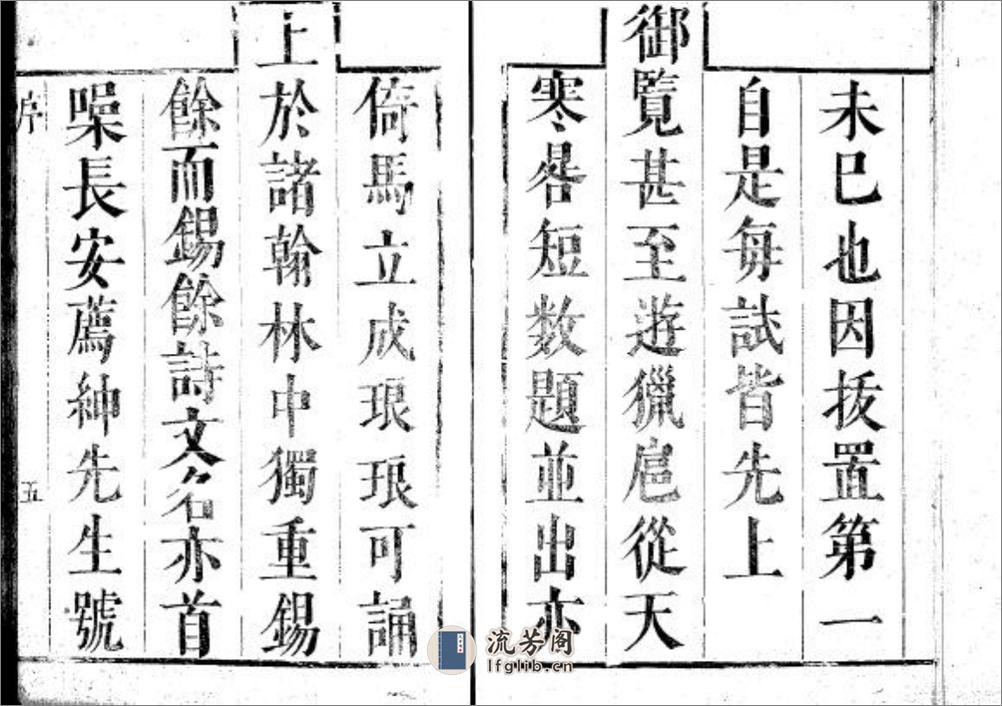 未已也因拔置第一
自是每試皆先上
御覽甚至遊獵扈從天
寒晷短数題並出亦
倚馬立成琅琅可誦
上於諸翰林中獨重錫
餘而錫餘詩文名亦首
噪長安薦紳先生號
序
五
流芳阁
lfglib.cn